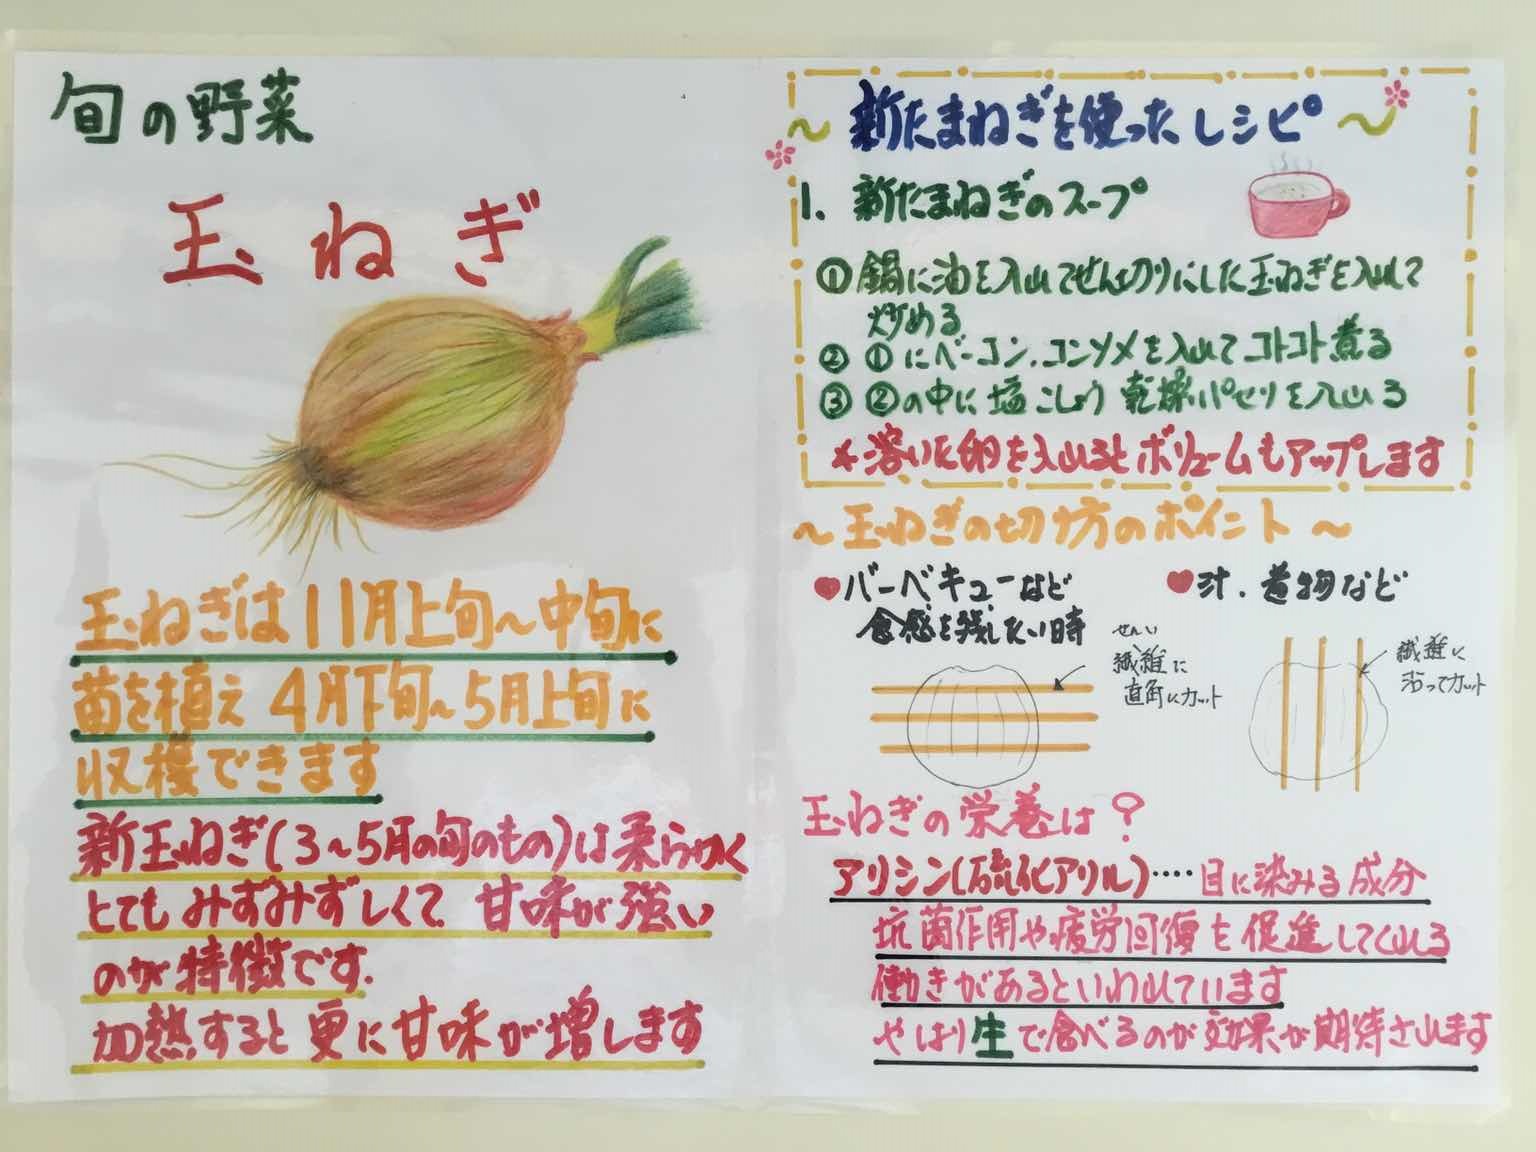 旬の野菜
玉ねぎ
玉ねぎは11月上旬~中旬に
苗を植え 4月下旬~5月上旬に
収穫できます
新玉ねぎ(3~5月の旬のもの)は柔らかく
とてもみずみずしくて、甘味が強い
のが特徴です。
加熱すると更に甘味が増します
~新たまねぎを使ったレシピ~
1. 新たまねぎのスープ
①鍋に油を入れてせん切りにした玉ねぎを入れて
炒める
② ①にベーコン、コンソメを入れてコトコト煮る
③ ②の中に塩こしょう 乾燥パセリを入れる
*溶いた卵を入れるとボリュームもアップします
~玉ねぎの切り方のポイント~
♥バーベキューなど
食感を残したい時
せんい
繊維に
直角にカット
♥汁、煮物など
繊維に
沿ってカット
玉ねぎの栄養は?
アリシン(硫化アリル)‥‥目に染みる成分
抗菌作用や疲労回復を促進してくれる
働きがあるといわれています
やはり生で食べるのが効果が期待されます